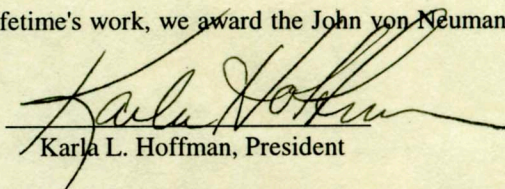 fetime's work, we award the John von Neuman
Karla Hoffman
Karla L. Hoffman, President